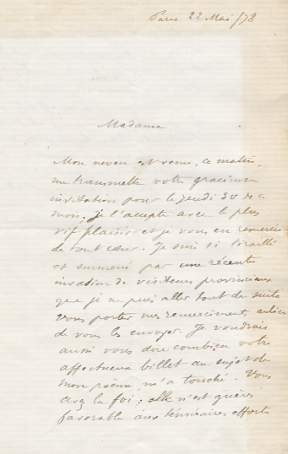 Paris 22 Mai /78
Madame
Mon neveu est venu, ce matin,
me transmettre votre gracieuse
invitation pour le jeudi 30 de ce
mois. Je l'accepte avec le plus
vif plaisir et je vous en remercie
de tout cœur. Je suis si tiraillé
et surmené par une récente
invasion de visiteurs provinciaux
que je ne puis aller tout de suite
vous porter mes remerciments, au lieu
de vous les envoyer. Je voudrais
aussi vous dire combien votre
affectueux billet au sujet de
mon poème m'a touché. Vous
avez la foi; elle n'est guères
favorable aux téméraires efforts